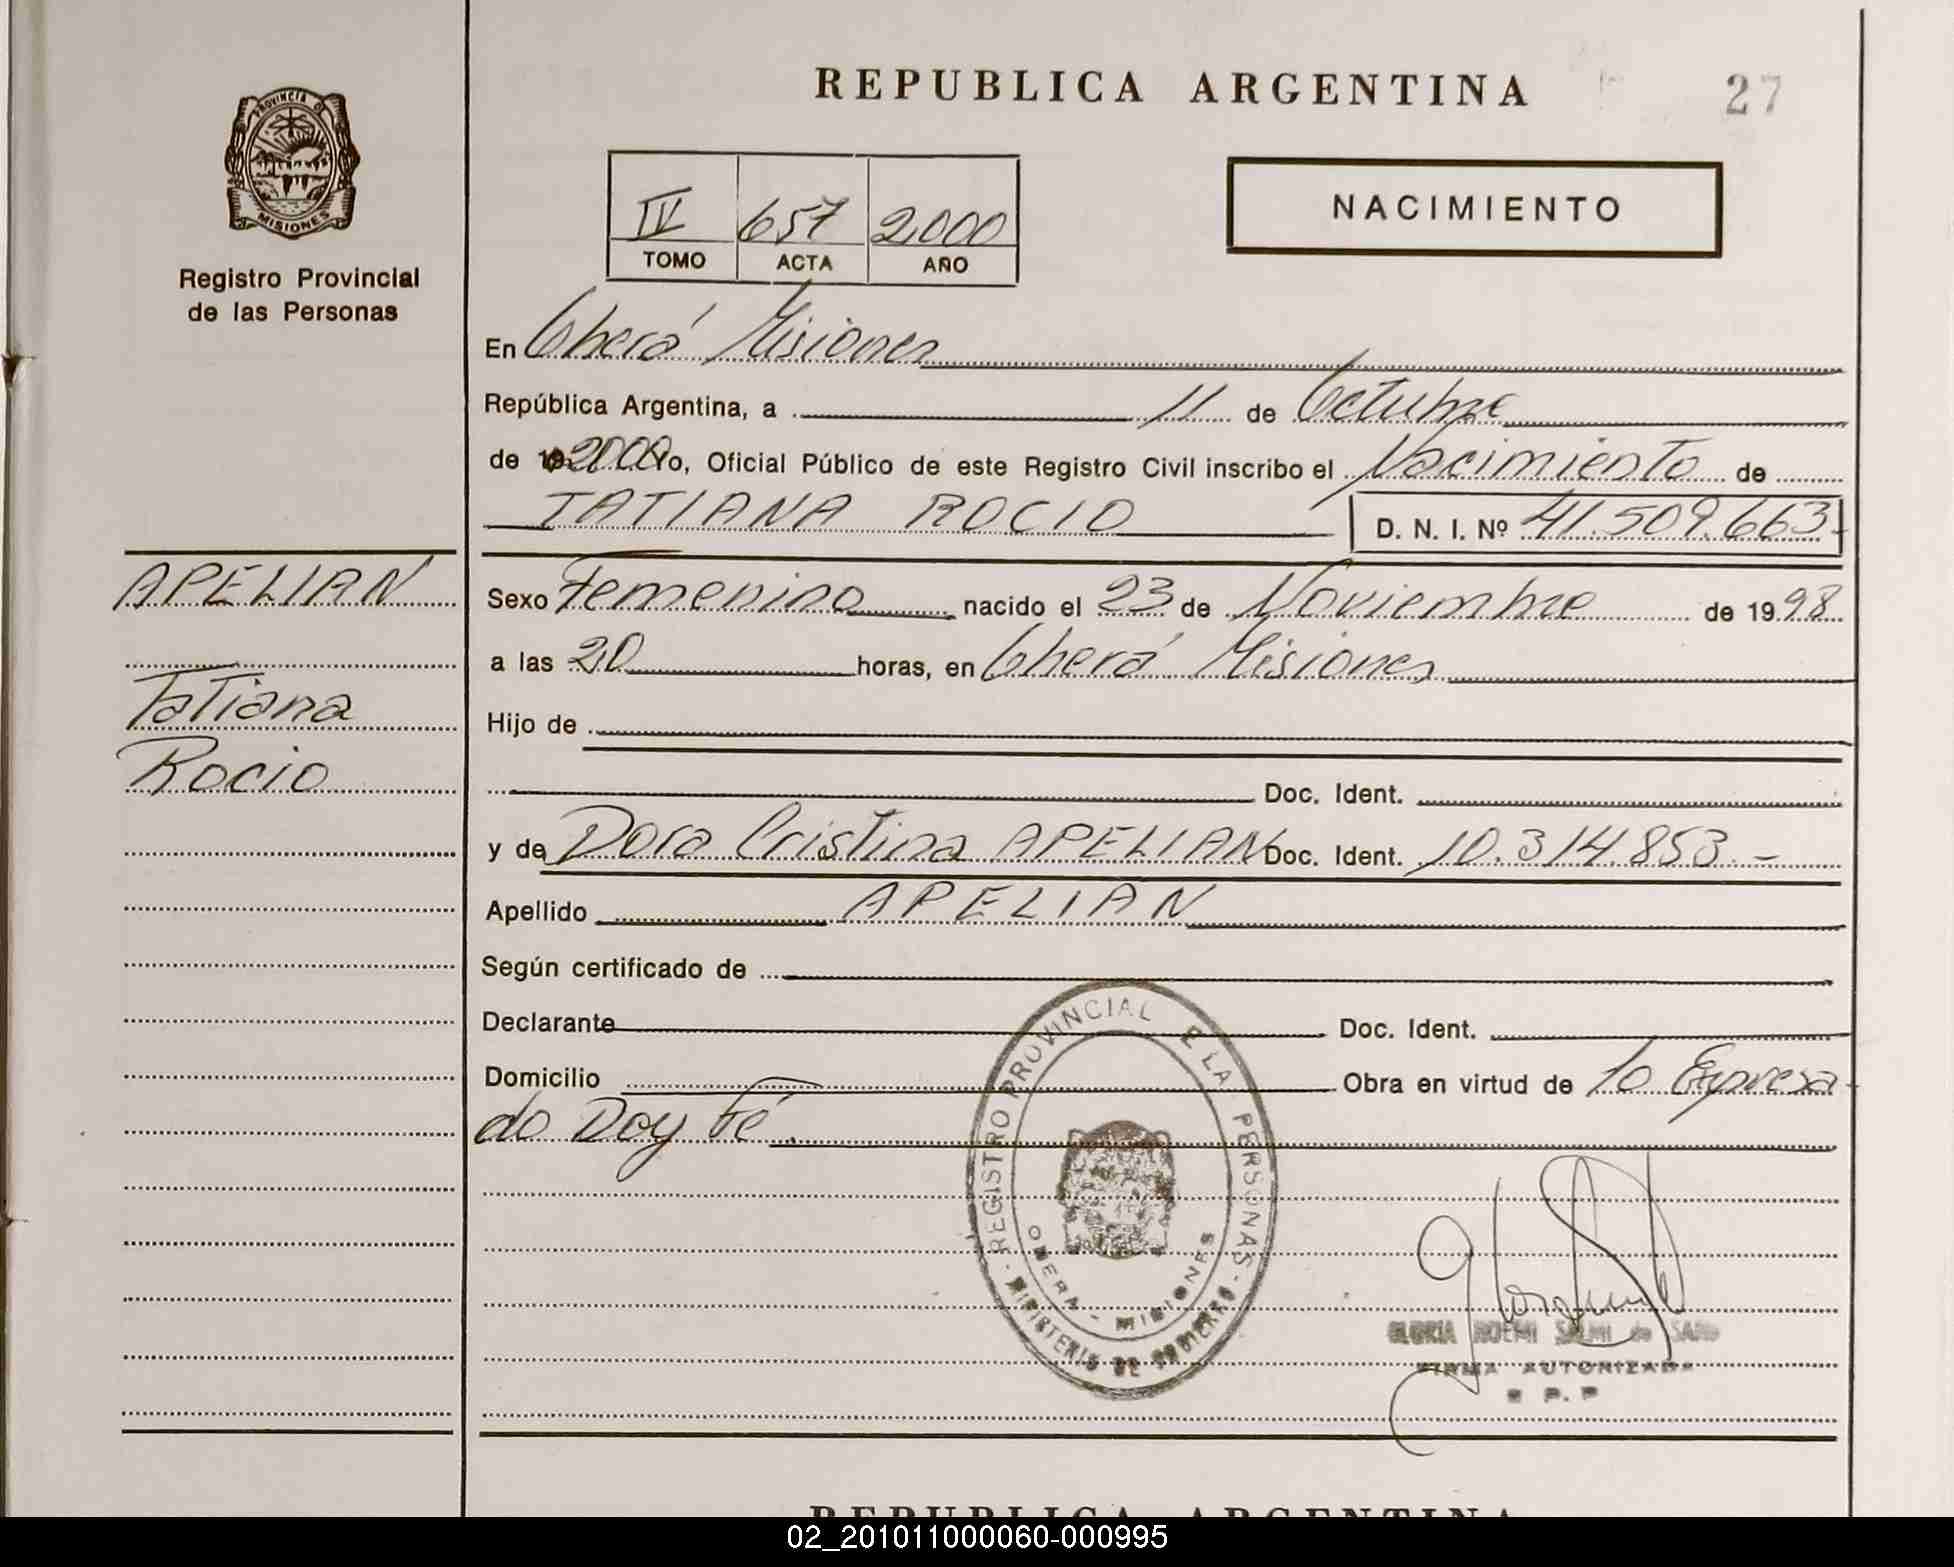 REPUBLICA ARGENTINA
27
PROVINCIA DE
MISIONES
Registro Provincial
de las Personas
NACIMIENTO
IV 657 2000
TOMO ACTA AÑO
En Oberá Misiones
República Argentina, a 11 de Octubre
de 2000 Yo, Oficial Público de este Registro Civil inscribo el Nacimiento de
TATIANA ROCIO D. N. I. Nº 41.509.663-
APELIAN
Tatiana
Rocio
Sexo Femenino nacido el 23 de Noviembre de 1998
a las 20 horas, en Oberá Misiones
Hijo de
Doc. Ident.
y de Dora Cristina APELIAN Doc. Ident. 10.314.853.-
Apellido APELIAN
Según certificado de
Declarante Doc. Ident.
Domicilio Obra en virtud de lo Expresa-
do Doy fé.
REGISTRO PROVINCIAL DE LA PERSONAS
OBERA - MISIONES
MINISTERIO DE GOBIERNO
GLORIA NOEMI
FIRMA AUTORIZADA
R P.P
REPUBLICA ARGENTINA
02_201011000060-000995